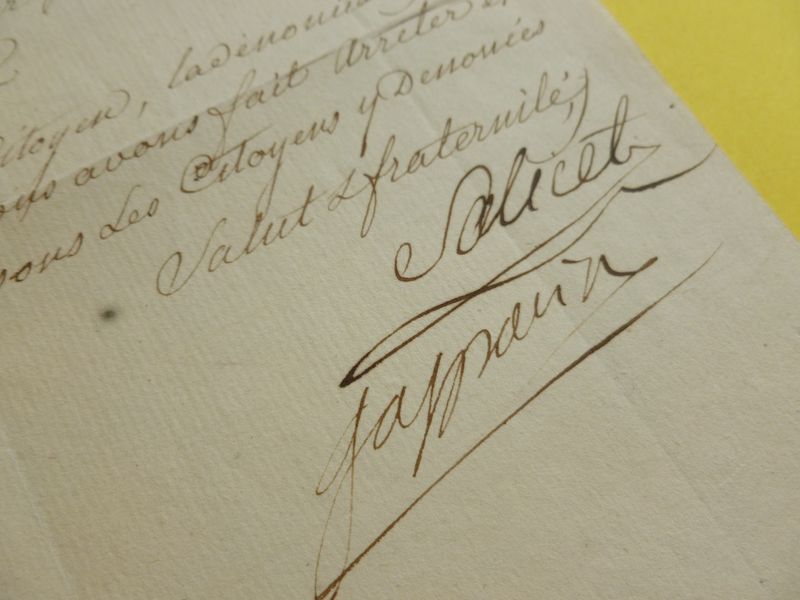 Citoyen, la dénonci
avons fait arrêter e
vons les Citoyens y Denoncés
Salut & fraternité,
Saliceti
Gasparin